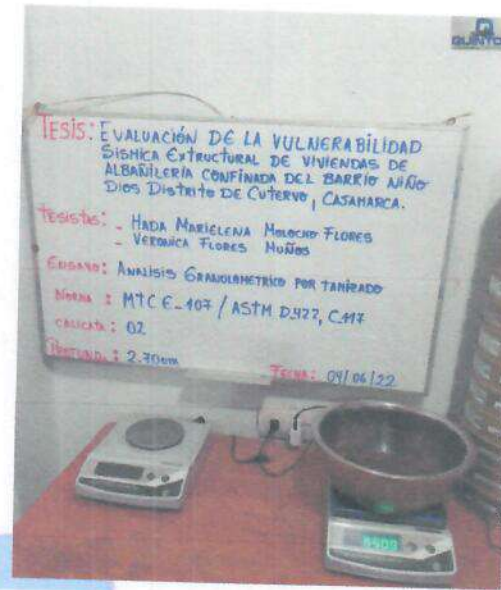 QUINTO
TESIS: EVALUACIÓN DE LA VULNERABILIDAD
SISMICA EXTRUCTURAL DE VIVIENDAS DE
ALBAÑILERÍA CONFINADA DEL BARRIO NIÑO
DIOS DISTRITO DE CUTERVO, CAJAMARCA.
TESISTAS: - HADA MARIELENA MOLOCHO FLORES
- VERONICA FLORES MUÑOS
ENSAYO: ANALISIS GRANOLOMETRICO POR TAMIZADO
NORMA : MTC E-107 / ASTM D422, C117
CALICATA : 02
: 2.70cm
FECHA: 04/06/22